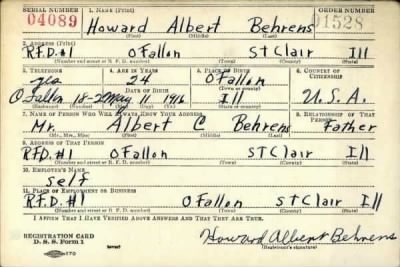 SERIAL NUMBER 1. NAME (Print) ORDER NUMBER
04089 Howard Albert Behrens 01528
(First) (Middle) (Last)
2. ADDRESS (Print)
R.F.D.#1 O'Fallon St Clair Ill
(Number and street or R. F. D. number) (Town) (County) (State)
3. TELEPHONE 4. AGE IN YEARS 5. PLACE OF BIRTH 6. COUNTRY OF CITIZENSHIP
yes 24 O'Fallon
DATE OF BIRTH (Town or county)
O'Fallon May 1916 Ill U.S.A.
(Exchange) (Number) (Mo.) (Day) (Yr.) (State or country)
7. NAME OF PERSON WHO WILL ALWAYS KNOW YOUR ADDRESS 8. RELATIONSHIP OF THAT PERSON
Mr. Albert C Behrens Father
(Mr., Mrs., Miss) (First) (Middle) (Last)
9. ADDRESS OF THAT PERSON
R.F.D.#1 O'Fallon St Clair Ill
(Number and street or R. F. D. number) (Town) (County) (State)
10. EMPLOYER'S NAME
self
11. PLACE OF EMPLOYMENT OR BUSINESS
R.F.D.#1 O'Fallon St Clair Ill
(Number and street or R. F. D. number) (Town) (County) (State)
I AFFIRM THAT I HAVE VERIFIED ABOVE ANSWERS AND THAT THEY ARE TRUE.
REGISTRATION CARD
D. S. S. Form 1
Howard Albert Behrens
(Registrant's signature)